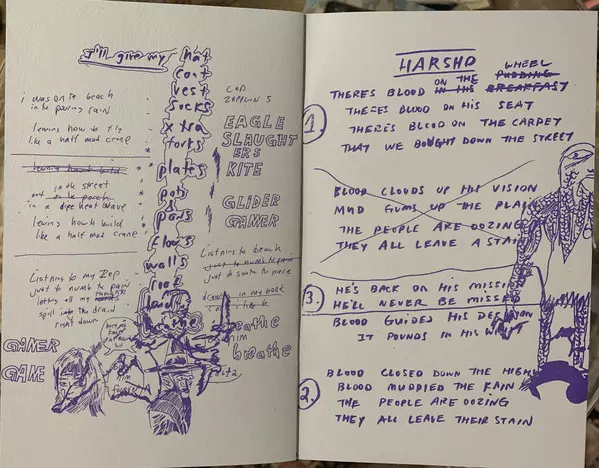 I'll give my hat
coat
vest
socks
xtra
forts
plates
pots
pans
floors
walls
roof
i was on the beach
in the pouring rain
learning how to fly
like a half mad crane
in the street
in a deep heat wave
learning how to build
like a half mad crane
Listning to my Zep
just to numb the pain
letting all my thoughts
spill into the drain
right down
LED
ZEPPLIN 5
EAGLE
SLAUGHT
ERS
KITE
GLIDER
GAMER
Listning to beach
just to numb the pain
just to
drawin in my book
breathe
him
breathe
GAMER
GAME
HARSHO
WHEEL
ON THE PUDDING
THERE'S BLOOD IN HIS BREAKFAST
1.
THERES BLOOD ON HIS SEAT
THERE'S BLOOD ON THE CARPET
THAT WE BOUGHT DOWN THE STREET
BLOOD CLOUDS UP HIS VISION
MUD GUMS UP THE PLAIN
THE PEOPLE ARE OOZING
THEY ALL LEAVE A STAIN
3.
HE'S BACK ON HIS MISSI
HE'LL NEVER BE MISSED
BLOOD GUIDED HIS DECISION
IT POUNDS IN HIS WRIST
BLOOD CLOSED DOWN THE HIGH
2.
BLOOD MUDDIED THE RAIN
THE PEOPLE ARE OOZING
THEY ALL LEAVE THEIR STAIN